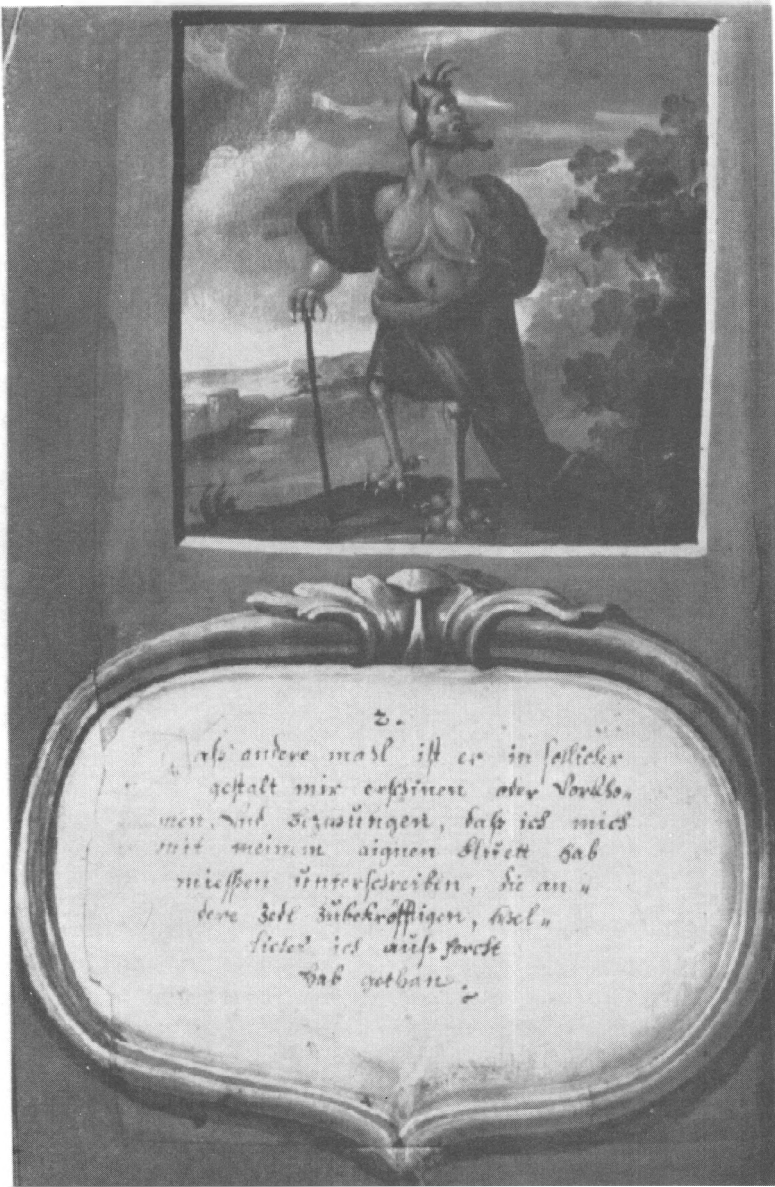 2.
aß andere mahl ist er in sollicher
gestalt mir erschinen oder Vorkho-
men, Vnd Bezwungen, daß ich mich
mit meinem aignen bluett hab
miessen únterschreiben, die an-
dere Zedl Zúbekröfftigen, wel-
liches ich aúß forcht
hab gethan.